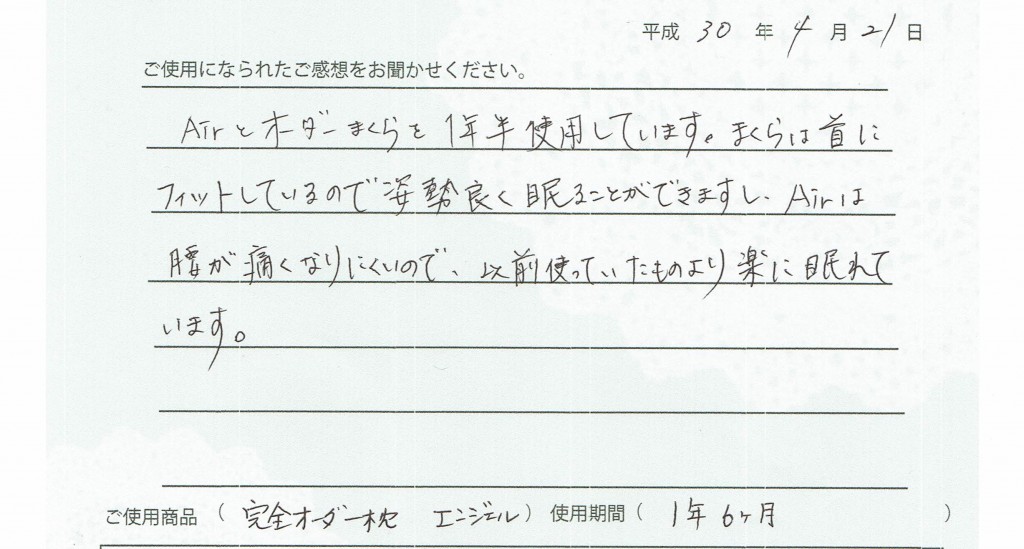 平成 30 年 4 月 21 日
ご使用になられたご感想をお聞かせください。
Airとオーダーまくらを1年半使用しています。まくらは首に
フィットしているので姿勢良く眠ることができますし、Airは
腰が痛くなりにくいので、以前使っていたものより楽に眠れて
います。
ご使用商品 ( 完全オーダー枕 エンジェル ) 使用期間 ( 1年6ヶ月 )